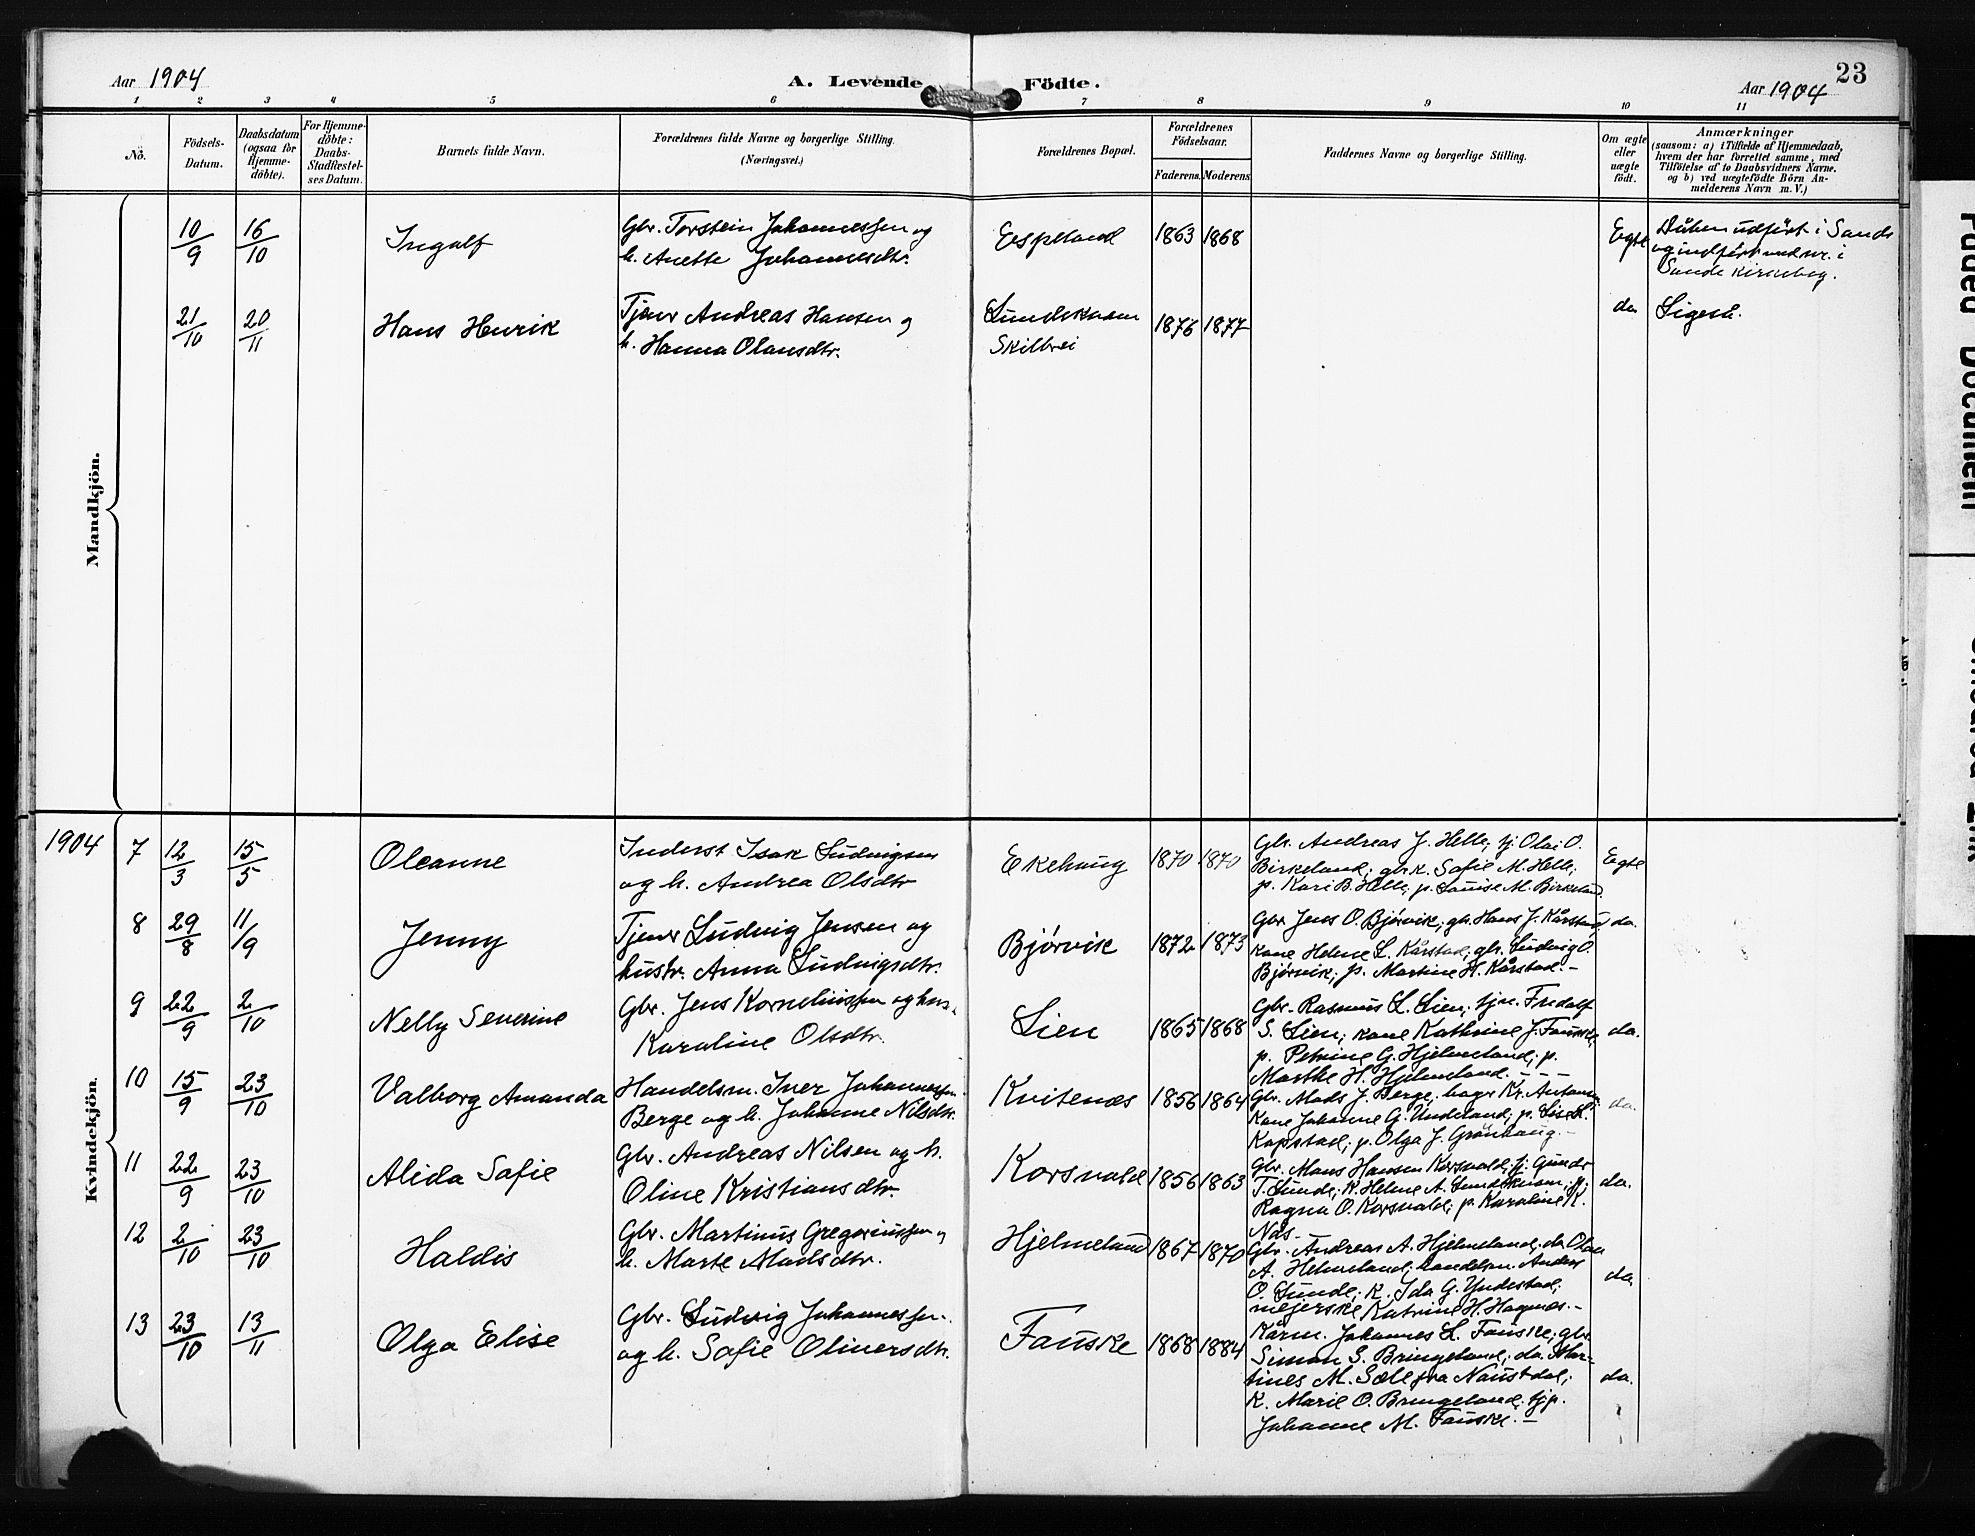 Aar 1904
A. Levende Födte.
23
Aar 1904
1 2 3 4 5 6 7 8 9 10 11
No.
Födsels-Datum.
Daabsdatum (ogsaa for Hjemme-döbte).
For Hjemme-döbte: Daabs-Stadfæstel-ses Datum.
Barnets fulde Navn.
Forældrenes fulde Navne og borgerlige Stilling.
(Næringsvei.)
Forældrenes Bopæl.
Forældrenes Födselsaar.
Faderens. Moderens.
Faddernes Navne og borgerlige Stilling.
Om ægte eller uægte födt.
Anmærkninger
(saasom: a) i Tilfælde af Hjemmedaab,
hvem der har forrettet samme, med
Tilföielse af to Daabsvidners Navne.
og b) ved uægtefödte Börn An-
melderens Navn m. V.)
Mandkjön.
10/9 16/10 Ingolf
Gbr. Torstein Johannessen og
h. Anette Johannesdtr.
Espeland 1863 1868
Egte
Dåben udført i Sande
og indført med nr. i
Sunde kirkebog.
21/10 20/11 Hans Henrik
Tjener Andreas Hansen og
h. Hanna Olansdtr.
Sundsknam
Skilbrei
1876 1877
do
Ligeså.
Kvindekjön.
1904
7 12/3 15/5 Oleanne
Inderst Isak Ludvigsen
og h. Andrea Olsdtr
Ekehaug 1870 1870
Gbr. Andreas J. Helle; tj. Olai O.
Birkeland; gbr.k. Safie M. Helle;
p. Kari B. Helle; p. Louise M. Birkeland.
Egte
8 29/8 11/9 Jenny
Tjener Ludvig Jensen og
hustr. Anna Ludvigsdtr.
Bjørvik 1872 1873
Gbr Jens O. Bjørvik; gbr. Hans J. Kårstad,
kone Helene L. Kårstad; gbr. Ludvig O.
Bjørvik; p. Martine H. Kårstad. –
do.
9 22/9 2/10 Nelly Severine
Gbr. Jens Korneliussen og hus.
Karoline Olsdtr.
Lien 1865 1868
Gbr. Rasmus L. Lien; tjn. Fredolf
S. Lien; kone Kathrine J. Fauske,
p. Petrine G. Hjelmeland; p.
Marthe H. Hjelmeland. – – –
do.
10 15/9 23/10 Valborg Amanda
Handelsm. Iver Johannessen
Berge og h. Johanne Nilsdtr.
Kvitenæs 1856 1864
Gbr. Mads J. Berge; bager Kr. Antonsen
Kone Johanne G. Undeland; p. Lise L.
Kopstad; p. Olga J. Grønhaug. –
do.
11 22/9 23/10 Alida Safie
Gbr. Andreas Nilsen og h.
Oline Kristiansdtr.
Korsvold 1856 1863
Gbr. Mons Hansen Korsvold; tj. Gunder
T. Sunde; K. Helene A. Sundsknam; p.
Ragna O. Korsvold; p. Karoline K.
Nas. –
do.
12 2/10 23/10 Haldis
Gbr. Martinus Gregoriussen og
h. Marte Madsdtr.
Hjelmeland 1867 1870
Gbr. Andreas A. Hjelmeland; do Olai
A. Helmeland; handelsm. Anders
O. Sunde; K. Ida G. Yndestad;
mejerske Katrine H. Hagenæs. –
do.
13 23/10 13/11 Olga Elise
Gbr. Ludvig Johannessen
og h. Safie Oliversdtr.
Fauske 1868 1884
Kårm. Johannes L. Fauske; gbr.
Simon S. Bringeland; do. Mar-
tines M. Sæle fra Naustdal;
K. Marie O. Bringeland; tjp.
Johanne M. Fauske. –
do.
Faded Document